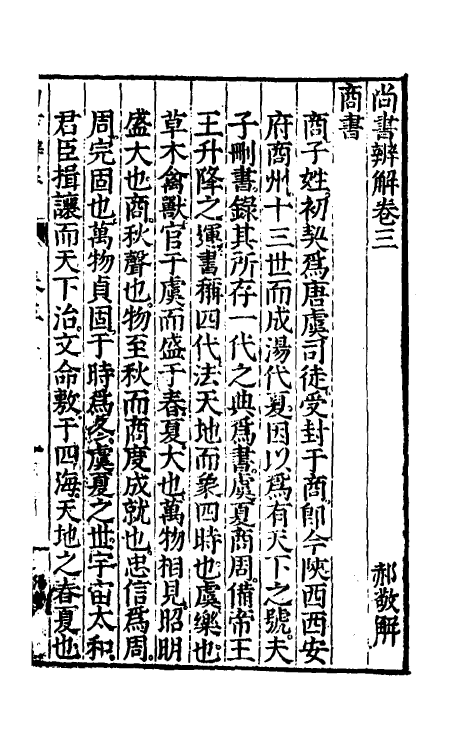 尚書辨解卷三
郝敬解
商書
商子姓初契爲唐虞司徒受封于商卽今陝西西安
府商州十三世而成湯代夏因以爲有天下之號夫
子刪書錄其所存一代之典爲書虞夏商周備帝王
王升降之運書稱四代法天地而象四時也虞樂也
草木禽獸官于虞而盛于春夏大也萬物相見昭明
盛大也商秋聲也物至秋而商度成就也忠信爲周
周完固也萬物貞固于時爲冬虞夏之世宇宙太和
君臣揖讓而天下治文命敷于四海天地之春夏也